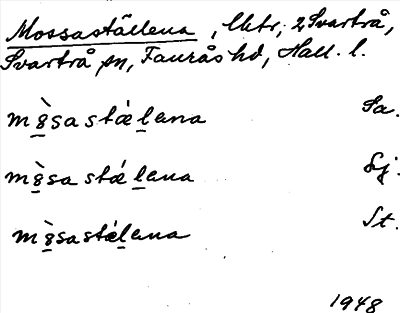 Mossaställena, lktr, 2 Svartrå,
Svartrå sn, Faurås hd, Hall. l.
mò̱sastǽḻena Sa.
mò̱sastǽḻena Lj.
mò̱sastǽḻena St.
1948